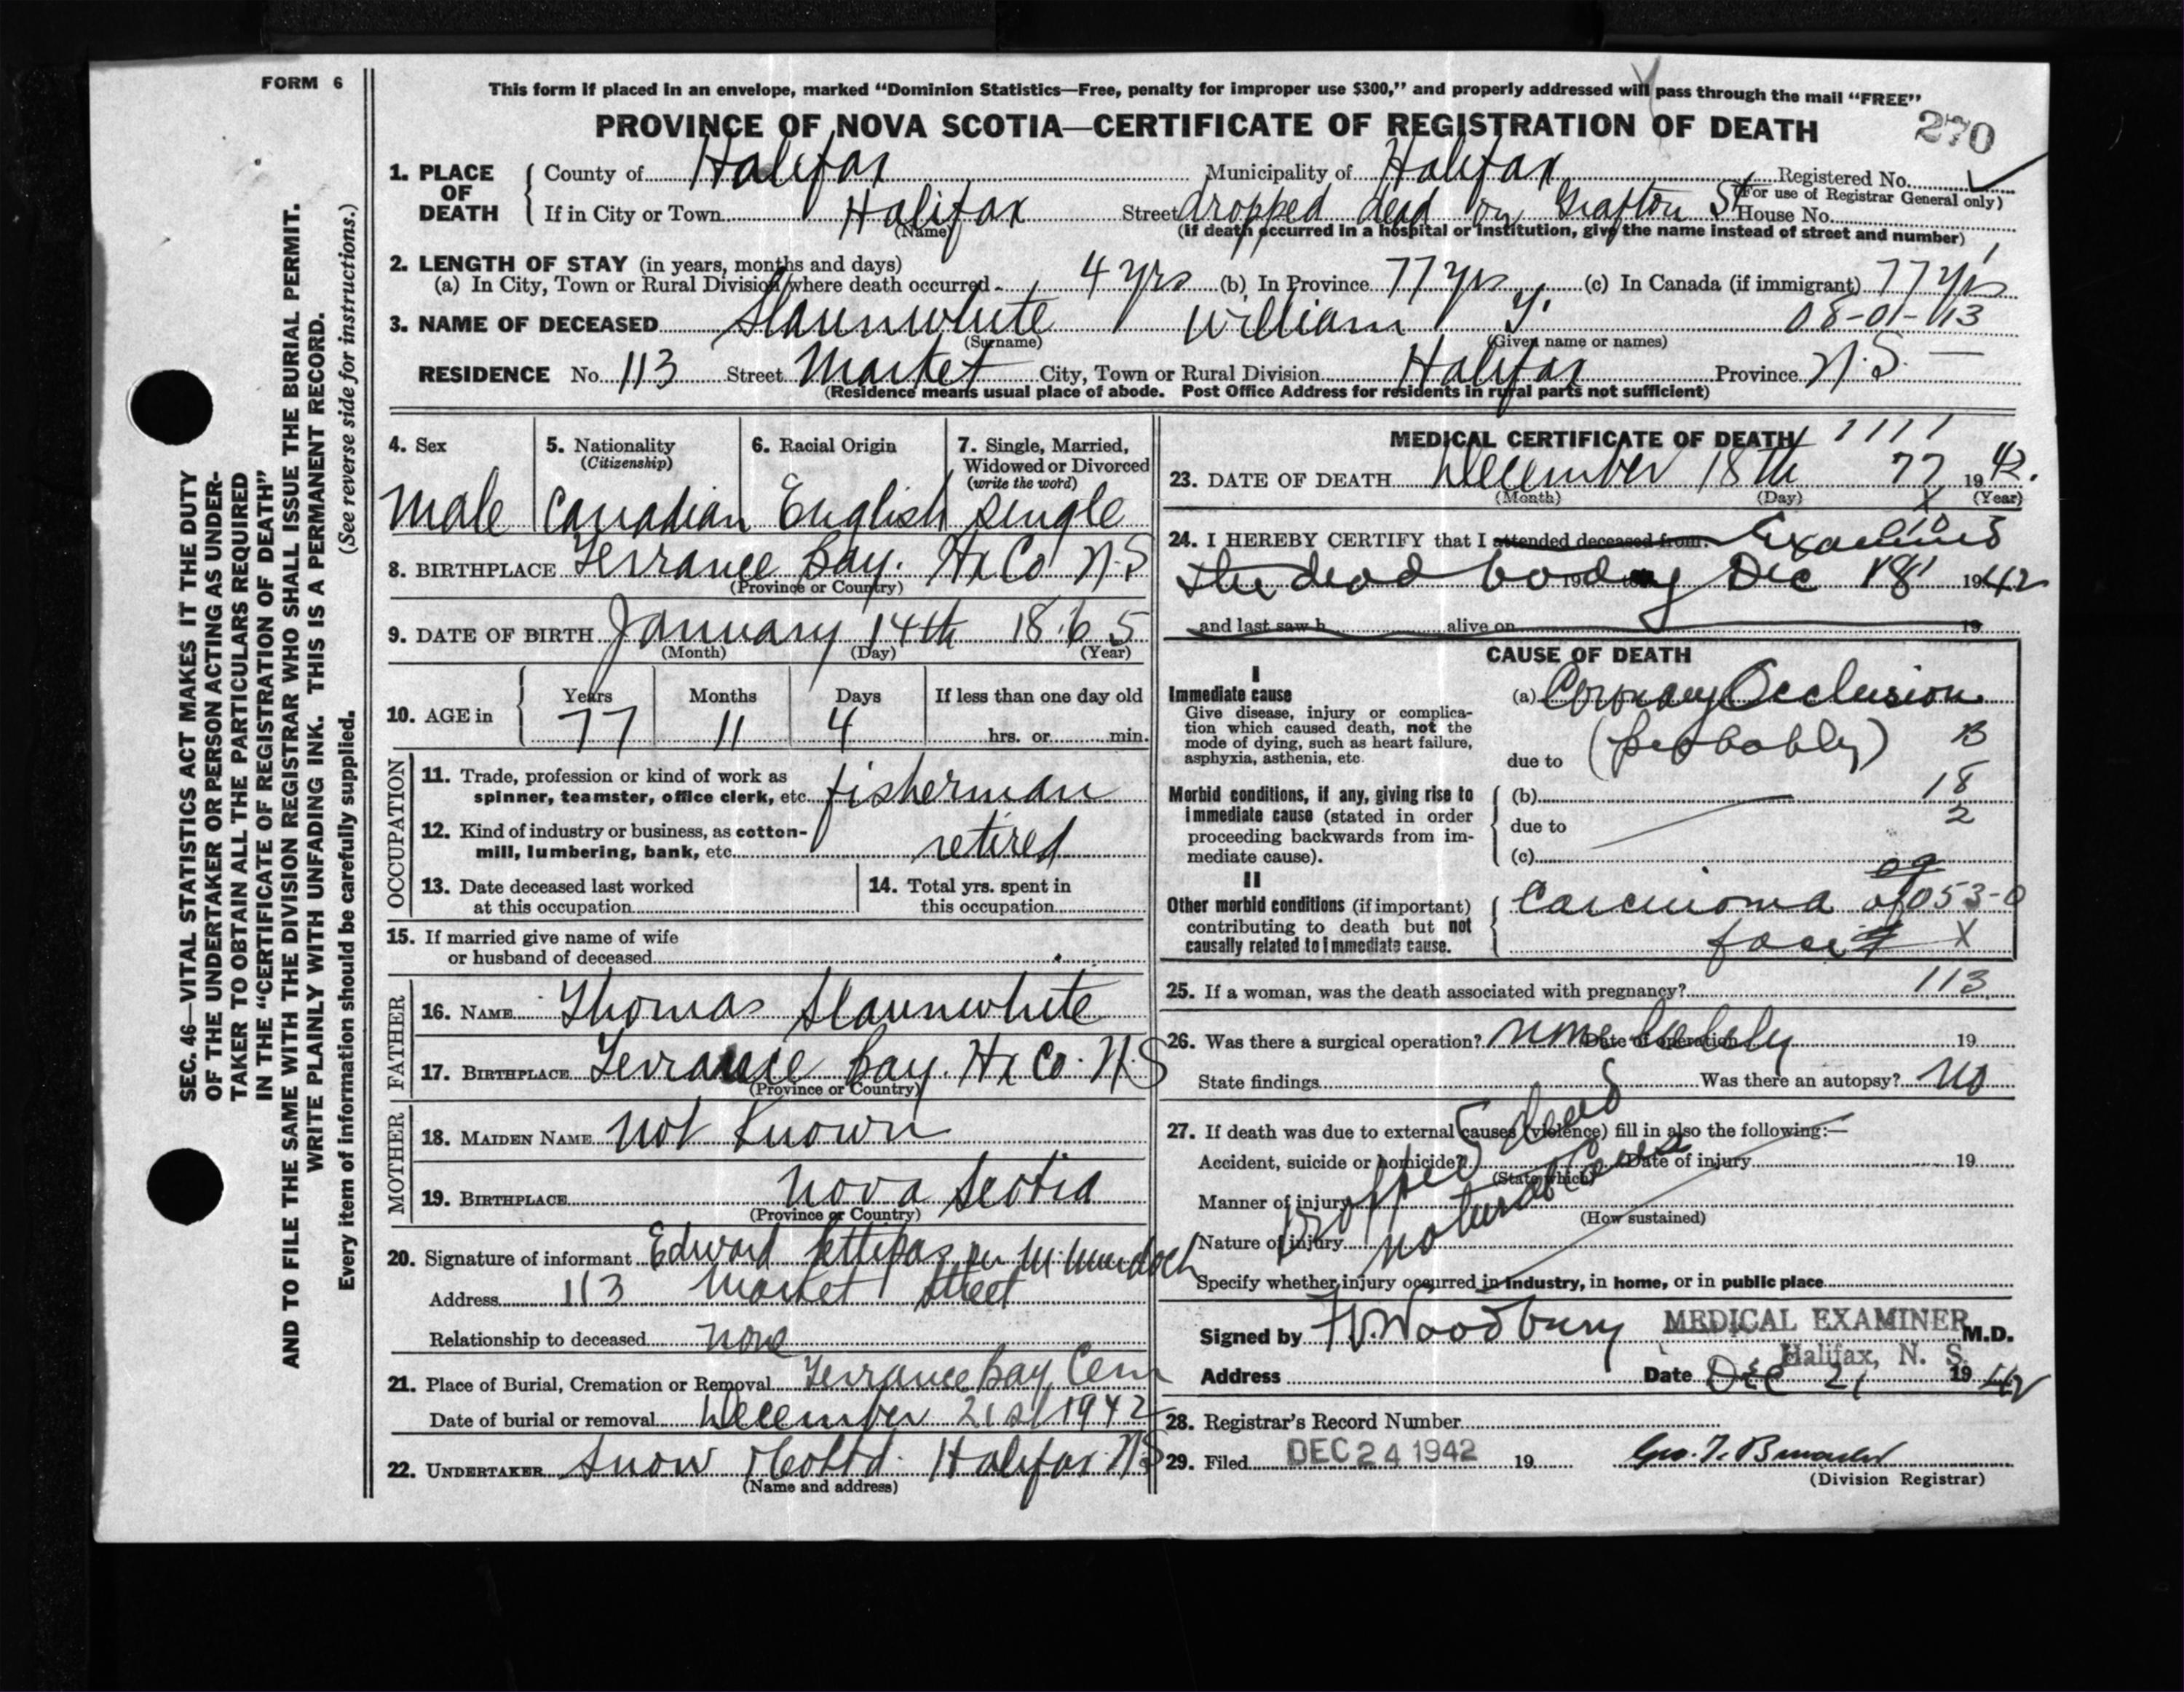 FORM 6
This form if placed in an envelope, marked "Dominion Statistics—Free, penalty for improper use $300," and properly addressed will pass through the mail "FREE"
PROVINCE OF NOVA SCOTIA—CERTIFICATE OF REGISTRATION OF DEATH
270
SEC. 46—VITAL STATISTICS ACT MAKES IT THE DUTY
OF THE UNDERTAKER OR PERSON ACTING AS UNDER-
TAKER TO OBTAIN ALL THE PARTICULARS REQUIRED
IN THE "CERTIFICATE OF REGISTRATION OF DEATH"
AND TO FILE THE SAME WITH THE DIVISION REGISTRAR WHO SHALL ISSUE THE BURIAL PERMIT.
WRITE PLAINLY WITH UNFADING INK. THIS IS A PERMANENT RECORD.
Every item of information should be carefully supplied. (See reverse side for instructions.)
1. PLACE OF DEATH
County of Halifax Municipality of Halifax Registered No.
(For use of Registrar General only)
If in City or Town Halifax Street dropped dead on Grafton St House No.
(Name) (If death occurred in a hospital or institution, give the name instead of street and number)
2. LENGTH OF STAY (in years, months and days)
(a) In City, Town or Rural Division where death occurred 4 yrs (b) In Province 77 yrs (c) In Canada (if immigrant) 77 yrs
3. NAME OF DECEASED Slaunwhite William 08-01-113
(Surname) (Given name or names)
RESIDENCE No. 113 Street Market City, Town or Rural Division Halifax Province N.S.
(Residence means usual place of abode. Post Office Address for residents in rural parts not sufficient)
4. Sex 5. Nationality (Citizenship) 6. Racial Origin 7. Single, Married, Widowed or Divorced (write the word)
male Canadian English single
8. BIRTHPLACE Terrance Bay. Hx Co N.S
(Province or Country)
9. DATE OF BIRTH January 14th 1865
(Month) (Day) (Year)
10. AGE in Years Months Days If less than one day old
77 11 4 hrs. or min.
OCCUPATION
11. Trade, profession or kind of work as
spinner, teamster, office clerk, etc. fisherman
12. Kind of industry or business, as cotton-
mill, lumbering, bank, etc. retired
13. Date deceased last worked at this occupation
14. Total yrs. spent in this occupation
15. If married give name of wife
or husband of deceased
FATHER
16. NAME Thomas Slaunwhite
17. BIRTHPLACE Terrance Bay. Hx Co. N.S
(Province or Country)
MOTHER
18. MAIDEN NAME not known
19. BIRTHPLACE Nova Scotia
(Province or Country)
20. Signature of informant Edward Pettipas per M. Murdoch
Address 113 Market Street
Relationship to deceased none
21. Place of Burial, Cremation or Removal Terrance Bay Cem
Date of burial or removal December 21st 1942
22. UNDERTAKER Snow & Co Ltd. Halifax N.S
(Name and address)
MEDICAL CERTIFICATE OF DEATH 1111
23. DATE OF DEATH December 18th 77 1942.
(Month) (Day) X (Year)
24. I HEREBY CERTIFY that I attended deceased from: Examined
the dead body 19 to Dec 18 1942
and last saw h alive on 19
CAUSE OF DEATH
I
Immediate cause
Give disease, injury or complica-
tion which caused death, not the
mode of dying, such as heart failure,
asphyxia, asthenia, etc.
(a) Coronary Occlusion
due to (probably) B
Morbid conditions, if any, giving rise to
immediate cause (stated in order
proceeding backwards from im-
mediate cause).
(b) 18
due to 2
(c)
II
Other morbid conditions (if important)
contributing to death but not
causally related to immediate cause.
Carcinoma of 053-0
face X
25. If a woman, was the death associated with pregnancy? 113
26. Was there a surgical operation? none lately Date of operation 19
State findings Was there an autopsy? no
27. If death was due to external causes (violence) fill in also the following:—
Accident, suicide or homicide? Date of injury 19
(State which)
Manner of injury
(How sustained)
Nature of injury
Dropped dead
natural causes
Specify whether injury occurred in industry, in home, or in public place
Signed by Woodbury MEDICAL EXAMINER M.D.
Halifax, N. S.
Address Date Dec 21 1942
28. Registrar's Record Number
29. Filed DEC 24 1942 19
(Division Registrar)